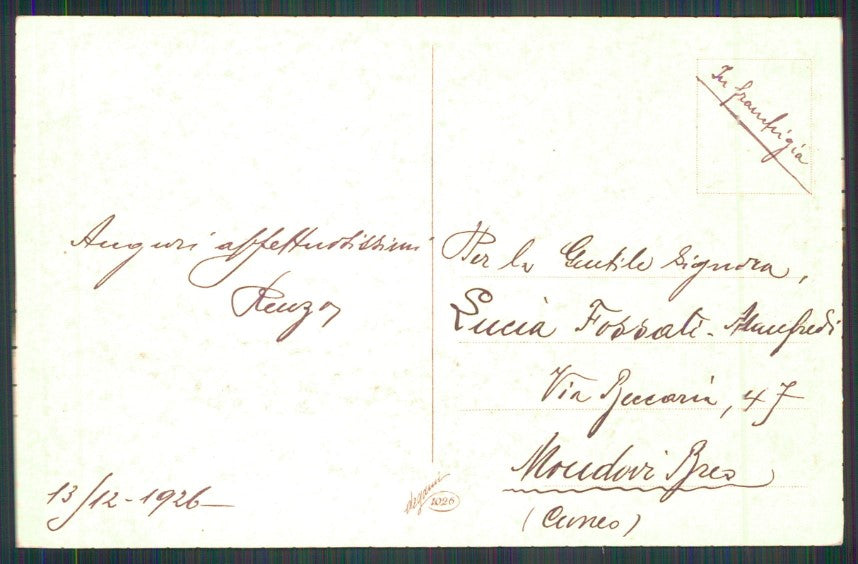 In franchigia
Auguri affettuosissimi
Renzo
13/12-1926
Per la Gentile Signora,
Lucia Fossati-Manfredi
Via Beccaria, 47
Mondovì Breo
(Cuneo)
degami
1026